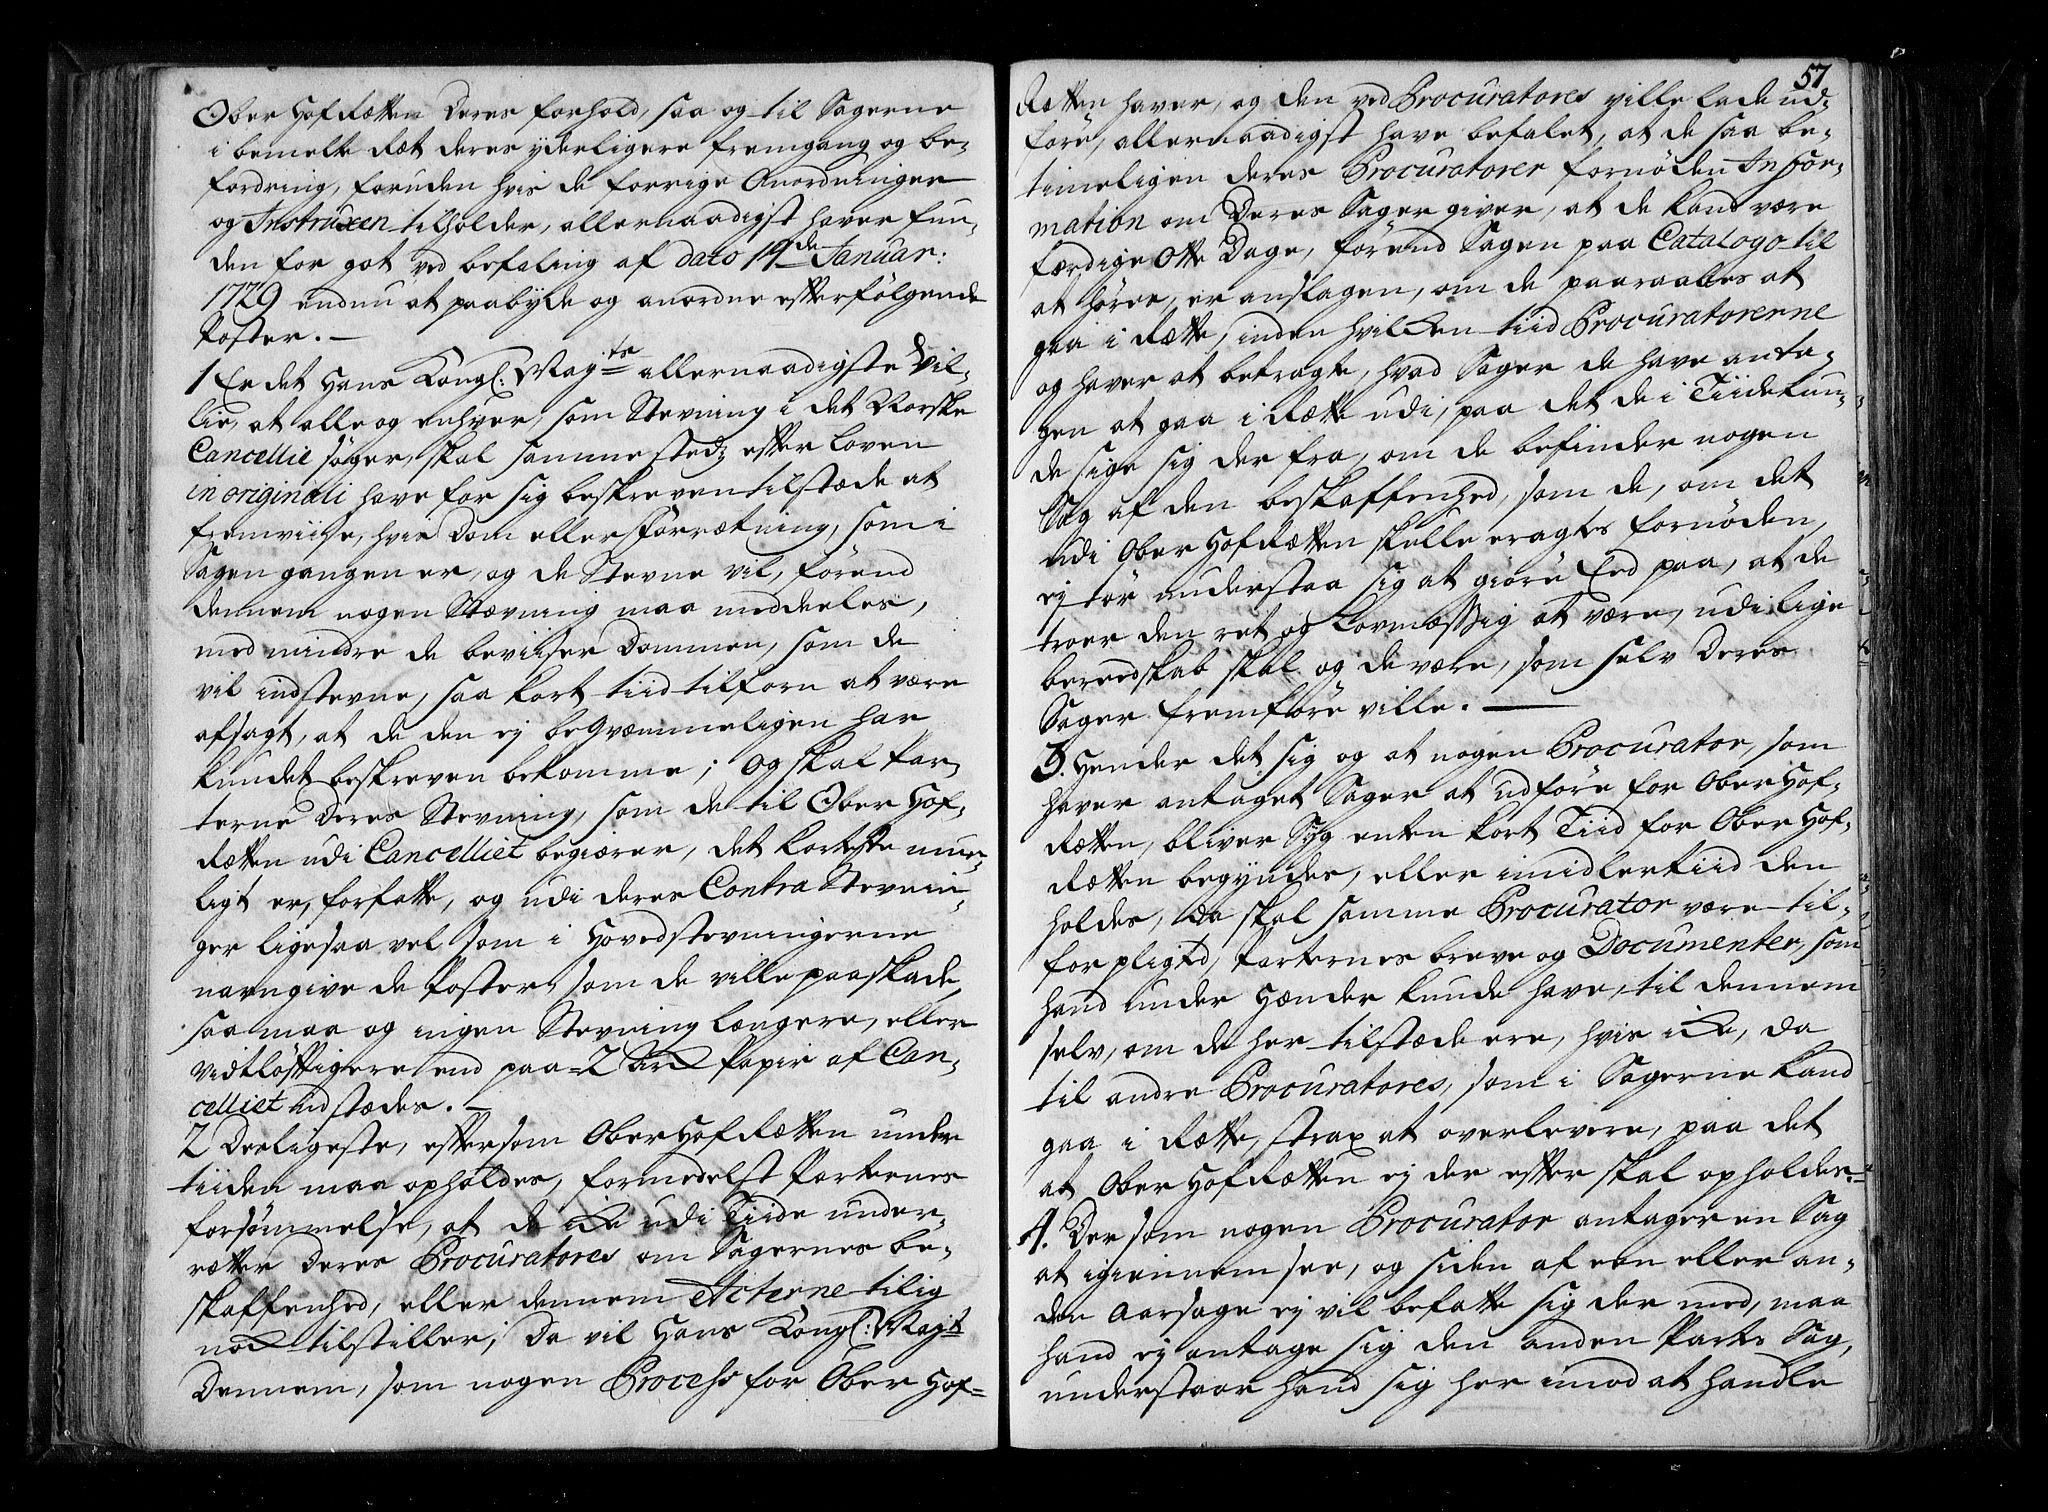 Ober Hof Rætten deres forhold, saa og til Sagerne
i bemelte Ræt deres yderligere fremgang og be-
fordring, foruden hvis de forrige Anordninger
og Instruxen tilholder, allernaadigst haver fun-
den for got ved befaling af dato 14de Januar:
1729 endnu at paabyde og anordne efterfølgende
Poster. —
1 Er det Hans Kongl: Mayts allernaadigste Vil-
lie, at alle og enhver, som Stevning i det Norske
Cancellie söger, skal sammesteds efter loven
in originali have for sig beskreven tilstæde at
fremviise, hvis Dom eller Forrætning, som i
Sagen gangen er, og de Stevne vil, förend
dennem nogen Stævning maa meddeeles,
med mindre de beviiser Dommen, som de
vil indstevne, saa kort tiid tilforn at være
afsagt, at de den ej beqvæmmeligen har
kundet beskreven bekomme; Og skal Par-
terne deres Stevning, som de til Ober Hof-
Rætten udi Cancelliet begiærer, det korteste mue-
ligt er, forfatte, og udi deres Contra Stevnin-
ger ligesaa vel som i Hovedstevningerne
navngive de Poster, som de ville paaskade,
saa maa og ingen Stevning længere, eller
vidtløftigere end paa 2 Ark Papir af Can-
celliet udstædes. —
2 Derligeste, eftersom Ober Hof Rætten under
tiiden maa opholdes, formedelst Parternes
forsömmelse, at de icke udi Tiide under-
rætter deres Procuratores om Sagernes be-
skaffenhed, eller dennem Acterne tilig
nok tilstiller; Da vil Hans Kongl: Mayt
Dennem, som nogen Process for Ober Hof-
57
Rætten haver, og den ved Procuratores ville lade ud-
före, allernaadigst have befalet, at de saa be-
timeligen deres Procuratorer fornöden Infor-
mation om deres Sager giver, at de kand være
færdige Otte Dage, förend Sagen paa Catalogo til
at höres, er anslagen, om de paaraabes at
gaa i Rætte, inden hvilken tiid Procuratorerne
og haver at betragte, hvad Sager de have anta-
gen at gaa i Rætte udi, paa det de i Tiide kun-
de sige sig der fra, om de befinder nogen
Sag af den beskaffenhed, som de, om det
udi Ober Hof Rætten skulle eragtes fornöden,
ej tör understaa sig at giöre Eed paa, at de
troer den ret og Lovmæssig at være, udi lige
bereedskab skal og de være, som selv deres
Sager fremföre ville. —
3. Hender det sig og at nogen Procurator, som
haver antaget Sager at udföre for Ober Hof-
Rætten, bliver Syg enten kort Tiid for Ober Hof-
Rætten begyndes, eller imidlertiid den
holdes, da skal samme Procurator være til-
forpligted, Parternes breve og Documenter, som
hand under Hænder kunde have, til dennem
selv, om de her tilstæde ere, hvis icke, da
til andre Procuratores, som i Sagerne kand
gaa i Rætte, strax at overlevere, paa det
at Ober Hof Rætten ej der efter skal opholdes.
4. Der som nogen Procurator antager en Sag
at igiennemsee, og siden af een eller an-
den Aarsage ej vil befatte sig der med, maa
hand ej antage sig den anden Parts Sag,
understaar hand sig her imod at handle